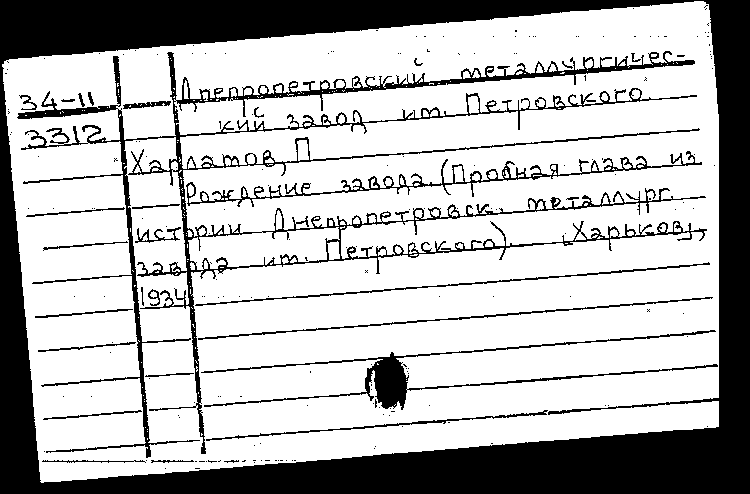 34-11 Днепропетровский металлургичес-
3312 кий завод им. Петровского
Харлатов, П
Рождение завода. (Пробная глава из
истории Днепропетровск. металлург.
завода им. Петровского). [Харьков],
1934